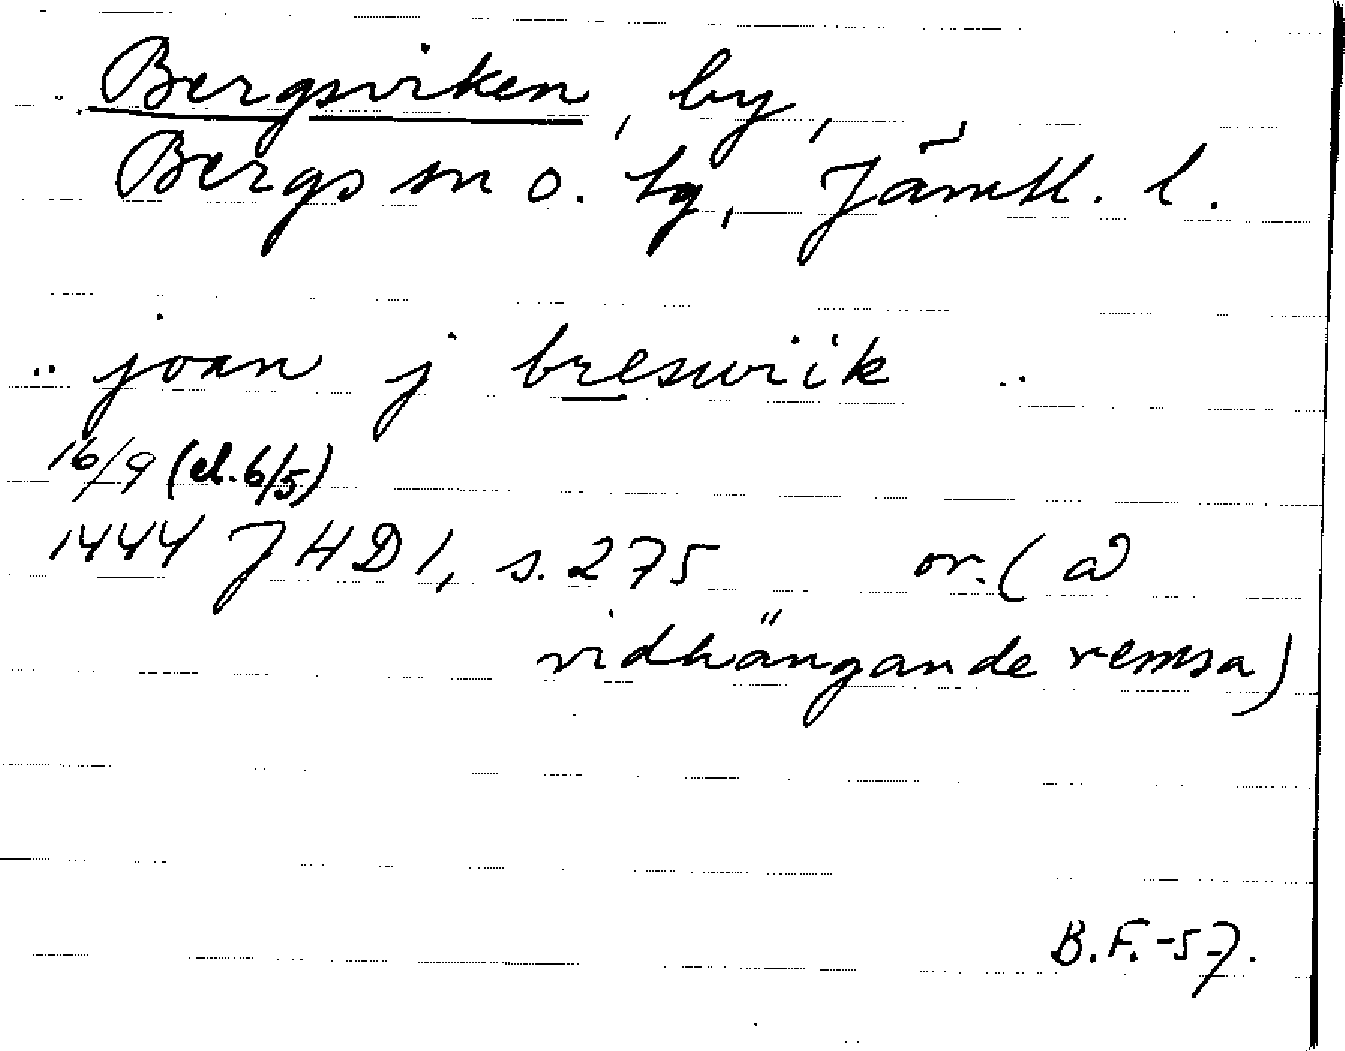 Bergsviken, by,
Bergs sn o. tg, Jämtl. l.
.. joan j breswiik ..
16/9 (el. 6/5)
1444 JHD 1, s. 275 or. (å
vidhängande remsa)
B.F.-57.